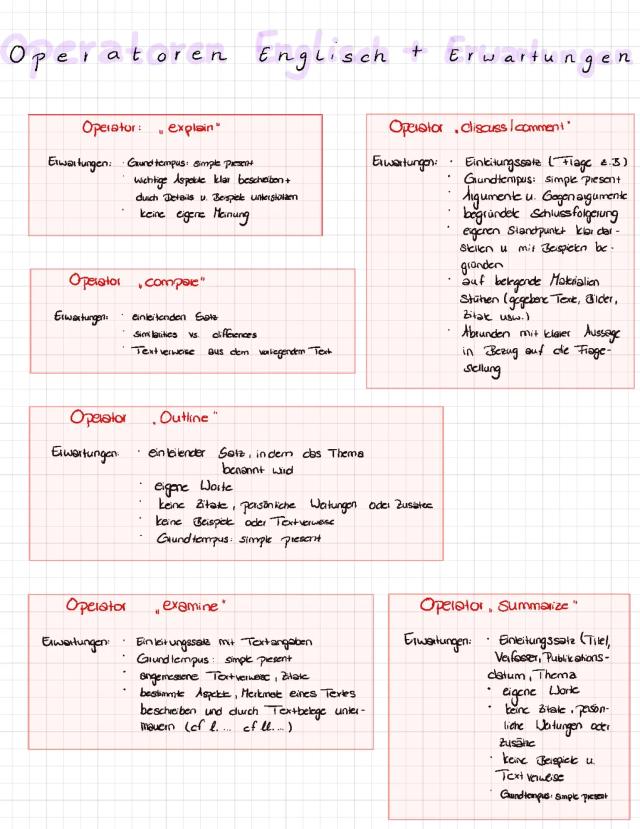 Operatoren Englisch + Erwartungen
Operator: „explain"
Erwartungen: · Grundtempus: simple present
· wichtige Aspekte klar beschreiben +
durch Details u. Beispiele unterstützen
· keine eigene Meinung
Operator „compare"
Erwartungen: · einleitenden Satz
· similarities vs. differences
· Textverweise aus dem vorliegendem Text
Operator „discuss/comment"
Erwartungen: · Einleitungssatz (Frage z.B)
· Grundtempus: simple present
· Argumente u. Gegenargumente
· begründete Schlussfolgerung
· eigenen Standpunkt klar dar-
stellen u mit Beispielen be-
gründen
· auf belegende Materialien
stützen (gegebene Texte, Bilder,
Zitate usw.)
· Abrunden mit klarer Aussage
in Bezug auf die Frage-
stellung
Operator „Outline"
Erwartungen: · einleitender Satz, in dem das Thema
benannt wird
· eigene Worte
· keine Zitate, persönliche Wertungen oder Zusätze
· keine Beispiele oder Textverweise
· Grundtempus: simple present
Operator „examine"
Erwartungen: · Einleitungssatz mit Textangaben
· Grundtempus: simple present
· angemessene Textverweise, Zitate
· bestimmte Aspekte, Merkmale eines Textes
beschreiben und durch Textbelege unter-
mauern (cf l. ... cf ll. ...)
Operator „Summarize"
Erwartungen: · Einleitungssatz (Titel,
Verfasser, Publikations-
datum, Thema
· eigene Worte
· keine Zitate, persön-
liche Wertungen oder
Zusätze
· keine Beispiele u.
Textverweise
· Grundtempus: simple present